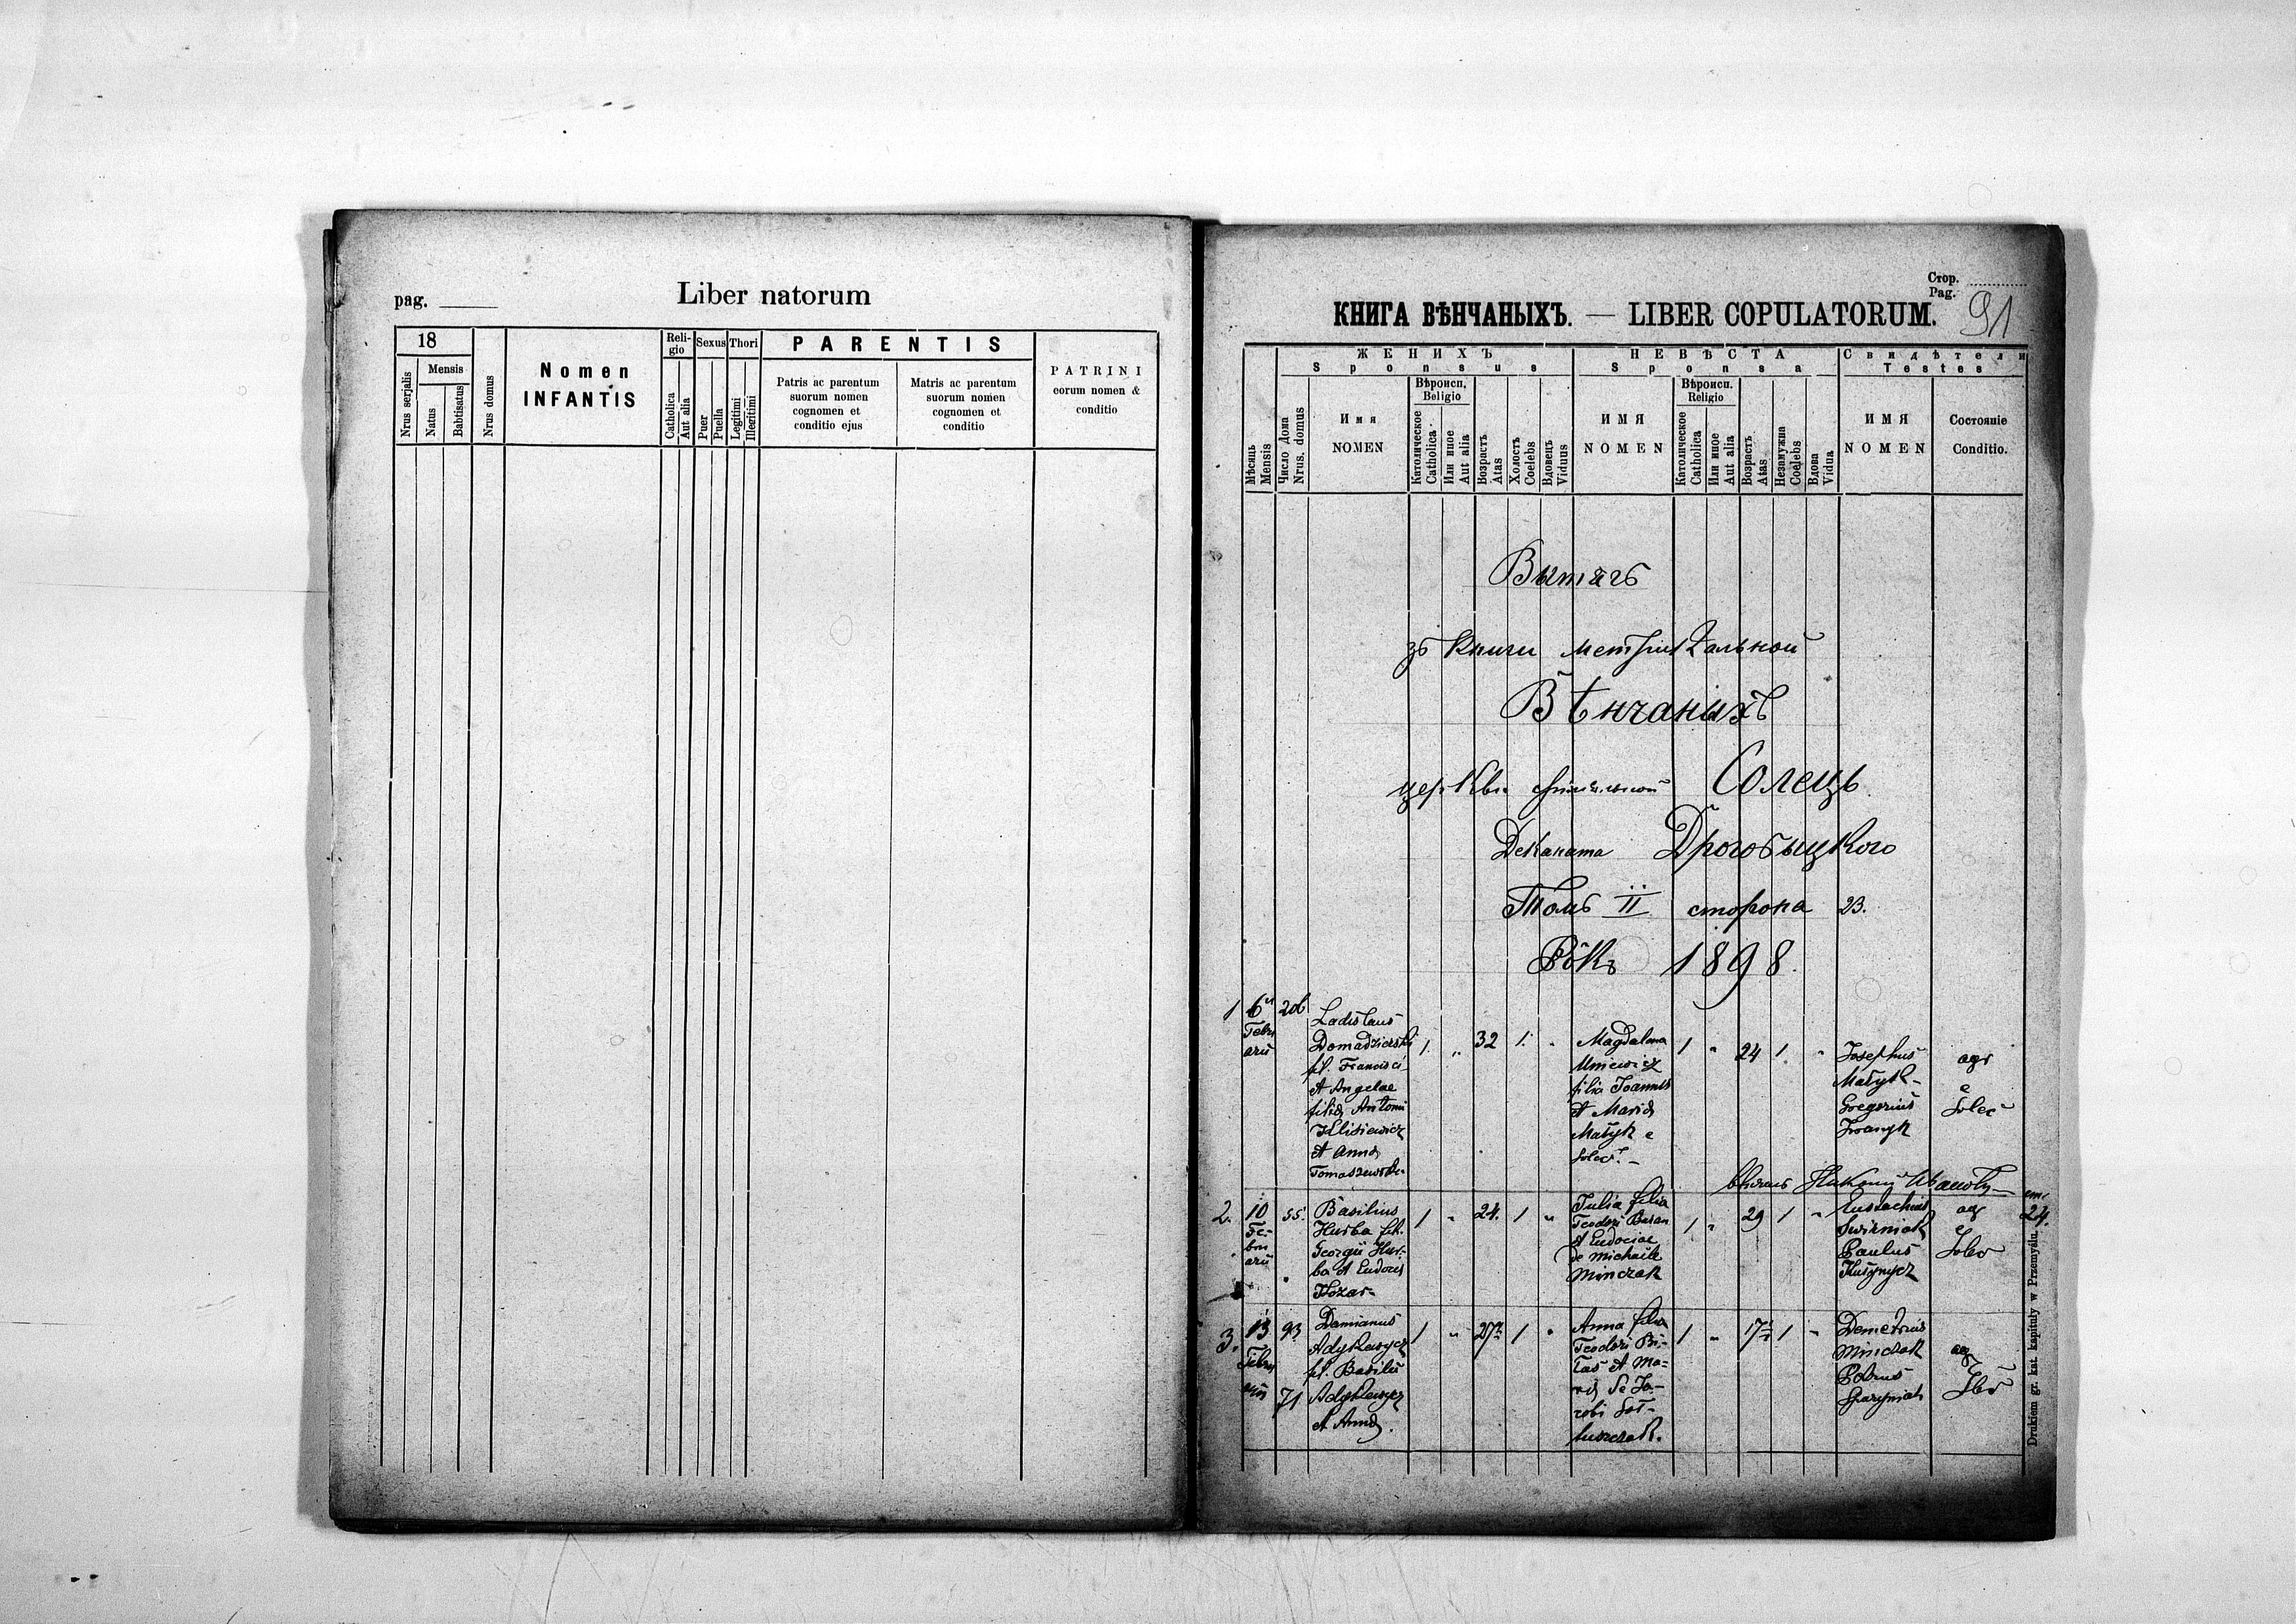 pag.
Liber natorum
18
Nrus serjalis
Mensis
Natus
Babtisatus
Nrus domus
Nomen
INFANTIS
Reli-
gio
Catholica
Aut alia
Sexus
Puer
Puella
Thori
Legitimi
Illegitimi
PARENTIS
Patris ac parentum
suorum nomen
cognomen et
conditio ejus
Matris ac parentum
suorum nomen
cognomen et
conditio
PATRINI
eorum nomen &
conditio
Стор.
Pag.
91
КНИГА ВѢНЧАНЫХЪ. — LIBER COPULATORUM.
Мѣсяць
Mensis
Число Дома
Nrus. domus
ЖЕНИХЪ
Sponsus
Имя
NOMEN
Вѣроисп.
Beligio
Католическое
Catholica
Или иное
Aut alia
Возрастъ
Atas
Холостъ
Coelebs
Вдовецъ
Viduus
НЕВѢСТА
Sponsa
ИМЯ
NOMEN
Вѣроисп.
Religio
Католическое
Catholica
Или иное
Aut alia
Возрастъ
Atas
Незамужна
Coelebs
Вдова
Vidua
Свидѣтели
Testes
ИМЯ
NOMEN
Состояніе
Conditio.
Вытягъ
зъ Книги метрикальной
Вѣнчаныхъ
церкви Солець
Деканата Дрогобыцкого
Томъ II сторона 23.
Рôкъ 1898.
1 6 206
Ladislaus
Domadzierski
fil. Francisci
et Angelae
filia Antonii
et Anna
1. „ 32 1. „
Magdalena
filia Joannis
et Maria
Matyk e
Solec. –
1 „ 24 1. „
Josephus
Matyk –
Gregorius
Iwanyk
agr
e
Solec
2. 10
Fe-
bru
arii
55.
Basilius
Hurba fil.
Georgii Hur-
ba et Eudoci
Kozar –
1 „ 24. 1 „
Julia filia
Teodori Baran
et Eudociae
de Michaele
Minczak
1 „ 29 1 „
Eustachius
Swirniak
Paulus
ag
e
Solec
24.
3. 13 93
71
Damianus
Adykewycz
fil. Basilii
Adykewycz
et Anna.
1 „ 27 1 „
Anna filia
Teodori Bi-
las et Ma-
ria de Ja-
cobi
1 „ 17 1 „
Demetrius
Minczak
Petrus
ag
Drukiem gr. kat. kapituły w Przemyślu.